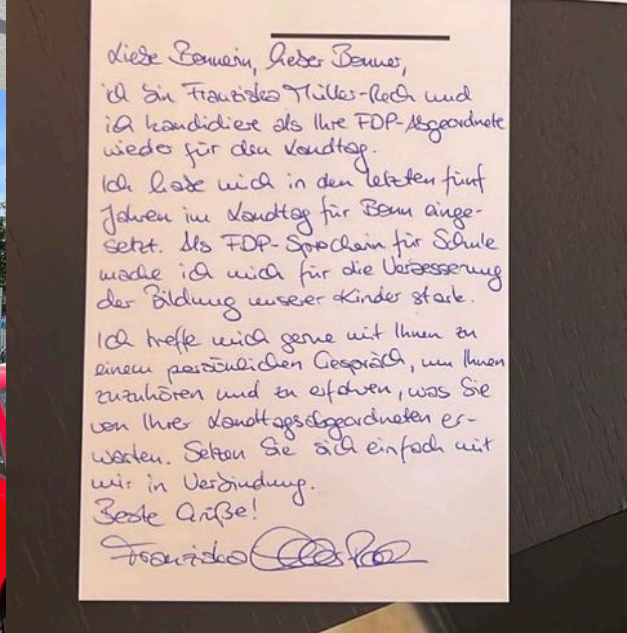 Liebe Bonnerin, lieber Bonner,
ich bin Franziska Müller-Rech und
ich kandidiere als Ihre FDP-Abgeordnete
wieder für den Landtag.
Ich habe mich in den letzten fünf
Jahren im Landtag für Bonn einge-
setzt. Als FDP-Sprecherin für Schule
mache ich mich für die Verbesserung
der Bildung unserer Kinder stark.
Ich treffe mich gerne mit Ihnen zu
einem persönlichen Gespräch, um Ihnen
zuzuhören und zu erfahren, was Sie
von Ihrer Landtagsabgeordneten er-
warten. Setzen Sie sich einfach mit
mir in Verbindung.
Beste Grüße!
Franziska Müller-Rech